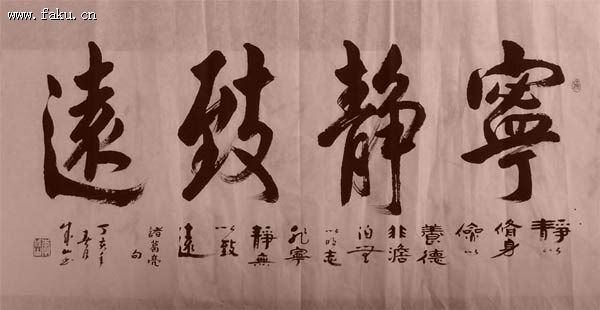 www.faku.cn
寧靜致遠
靜以
脩身
儉以
養德
非澹
泊無
以明志
非寧
靜無
以致
遠
諸葛亮
句
丁亥年